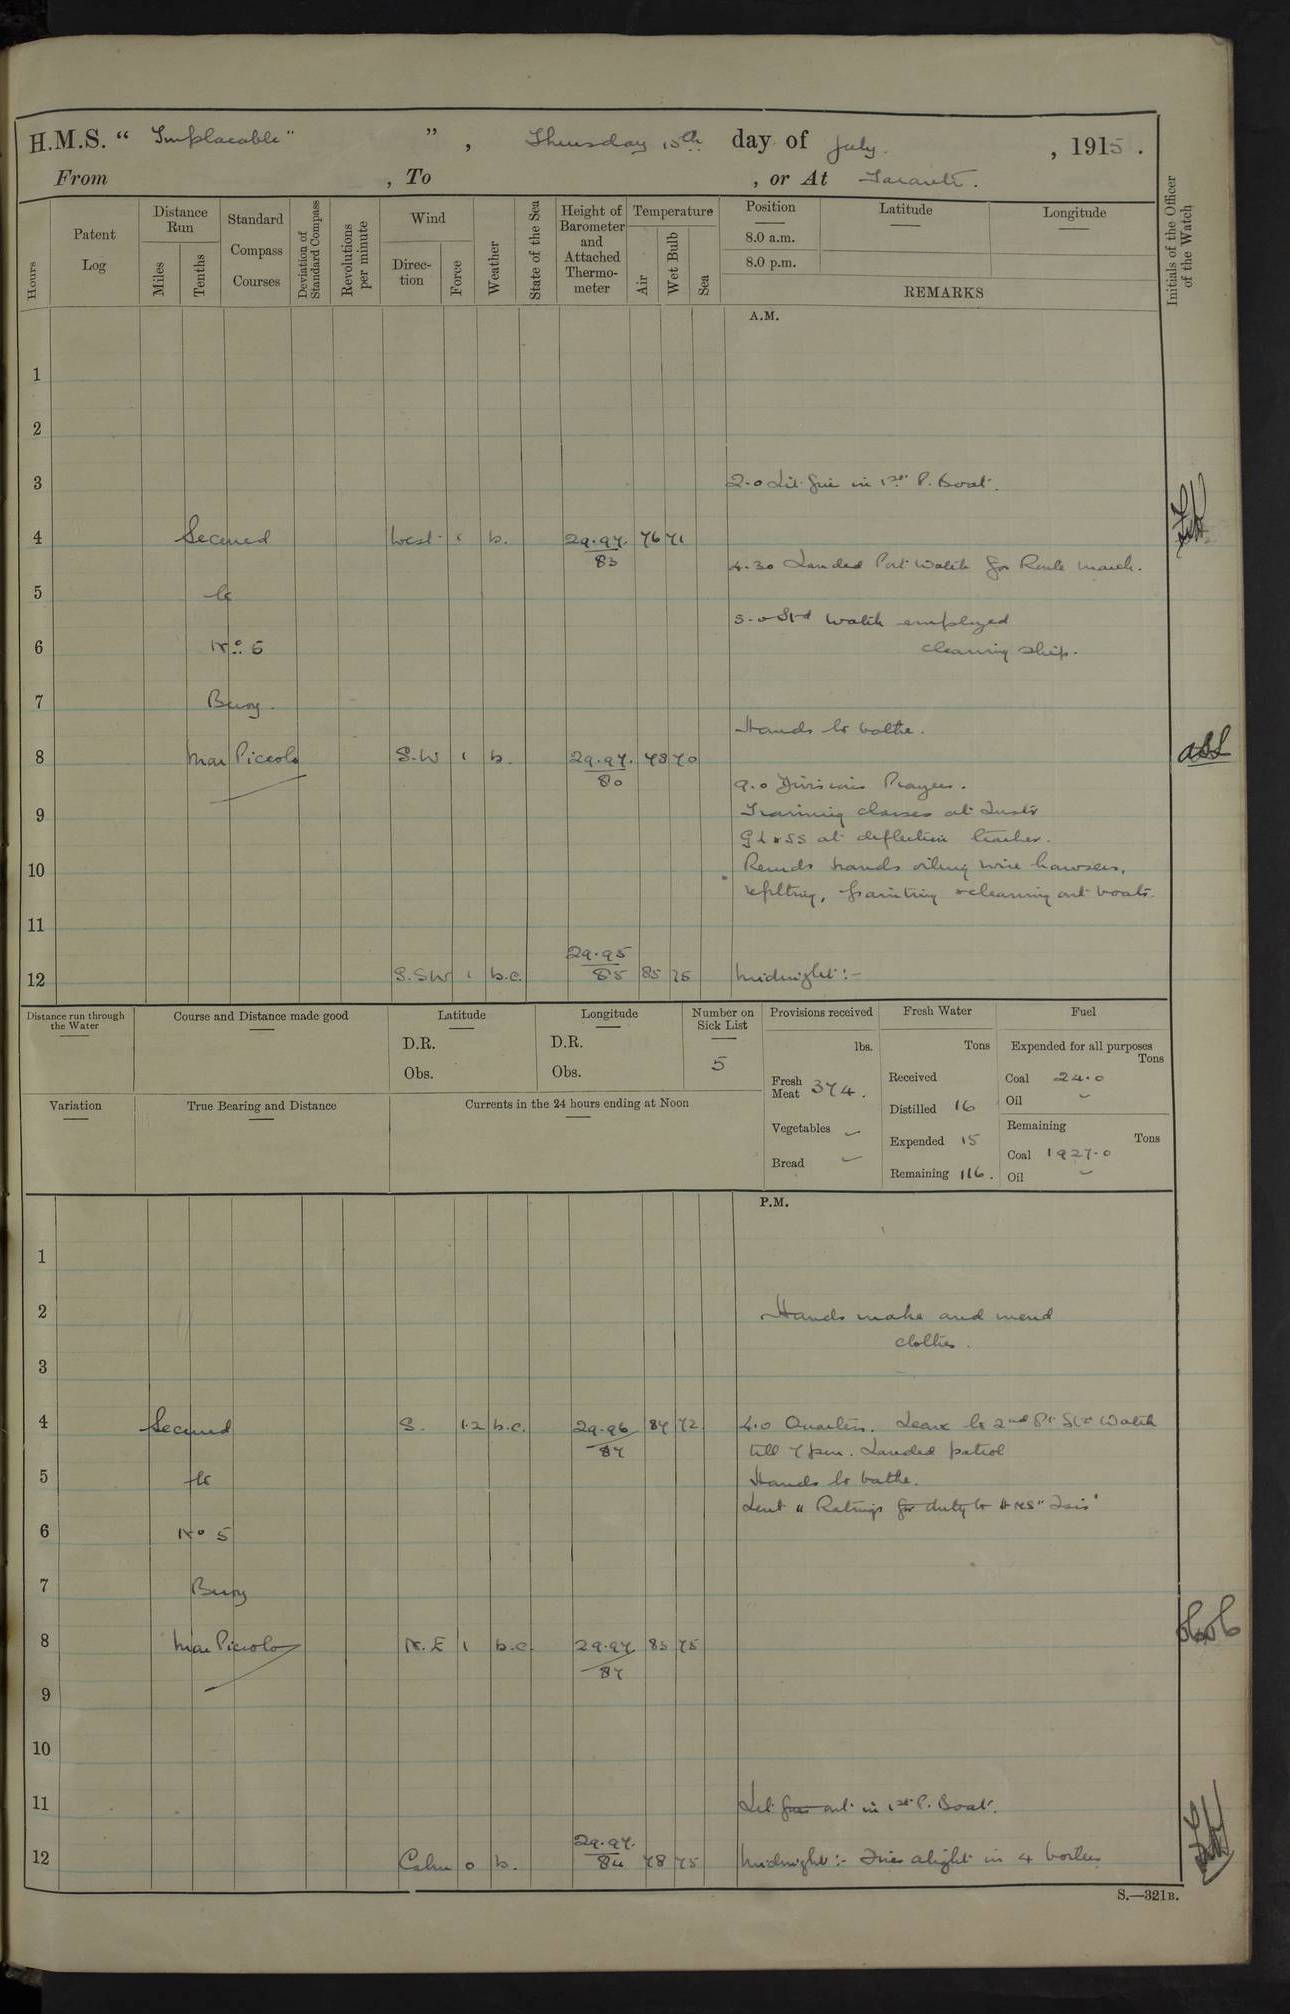 H.M.S. “ Implacable" ” , Thursday 15th day of July , 1915 .
From , To , or At Taranto .
Hours
Patent Log
Distance Run
Miles
Tenths
Standard Compass Courses
Deviation of Standard Compass
Revolutions per minute
Wind
Direction
Force
Weather
State of the Sea
Height of Barometer and Attached Thermometer
Temperature
Air
Wet Bulb
Sea
Position
8.0 a.m.
8.0 p.m.
Latitude
Longitude
REMARKS
Initials of the Officer of the Watch
A.M.
1
2
3 2.0 Lit fire in 1st P. Boat.
4 Secured West 1 b. 29.97 83 76 71
4.30 Landed Port Watch for Route march.
5 to
5.0 Stbd Watch employed
6 No. 5 cleaning ship.
7 Buoy.
Hands to bathe.
8 Mar Piccolo S.W 1 b. 29.97. 80 78 70
9.0 Divisions Prayers.
9 Training classes at Instr
GL & SS at deflection teacher.
10 Remdr hands oiling wire hawsers,
refitting, painting & cleaning out boats.
11
12 S.SW 1 b.c. 29.95 85 85 75 Midnight:-
Distance run through the Water
Course and Distance made good
Latitude
D.R.
Obs.
Longitude
D.R.
Obs.
Number on Sick List
5
Provisions received
lbs.
Fresh Meat 374.
Vegetables –
Bread –
Fresh Water
Tons
Received
Distilled 16
Expended 15
Remaining 116.
Fuel
Expended for all purposes
Tons
Coal 24.0
Oil –
Remaining
Tons
Coal 1927.0
Oil –
Variation
True Bearing and Distance
Currents in the 24 hours ending at Noon
P.M.
1
2 Hands make and mend
clothes.
3
4 Secured S. 1.2 b.c. 29.96 87 87 72 4.0 Quarters. Leave to 2nd Pt Stbd Watch
till 7 pm. Landed patrol
5 to Hands to bathe.
Lent " Ratings for duty to HMS "Isis"
6 No 5
7 Buoy
8 Mar Piccolo N.E 1 b.c. 29.97 87 83 75
9
10
11 Let fires out in 1st P. Boat.
12 Calm 0 b. 29.97. 84 78 75 Midnight:- Fires alight in 4 boilers
S.—321B.